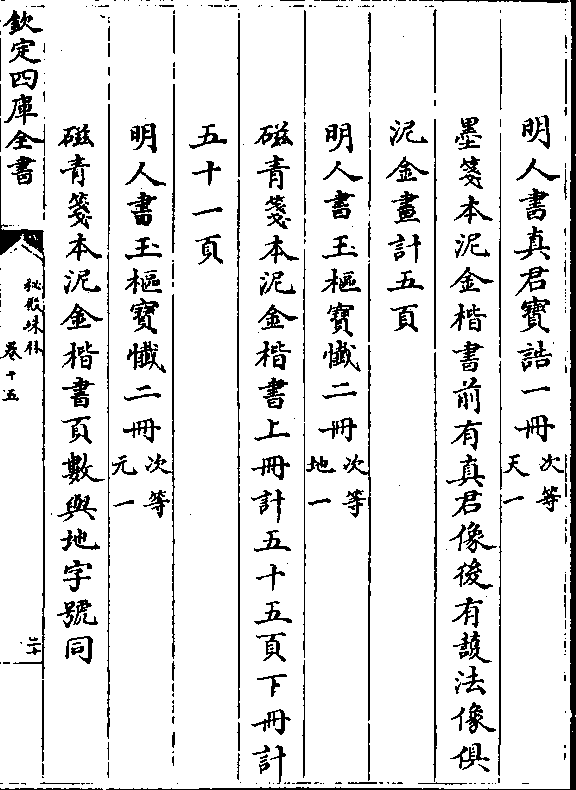 明人書真君寶誥一冊次等天一
墨箋本泥金楷書前有真君像後有護法像俱
泥金畫計五頁
明人書玉樞寶懺二冊次等地一
磁青箋本泥金楷書上冊計五十五頁下冊計
五十一頁
明人書玉樞寶懺二冊次等元一
磁青箋本泥金楷書頁數與地字號同
欽定四庫全書
秘殿珠林
卷十五
二十